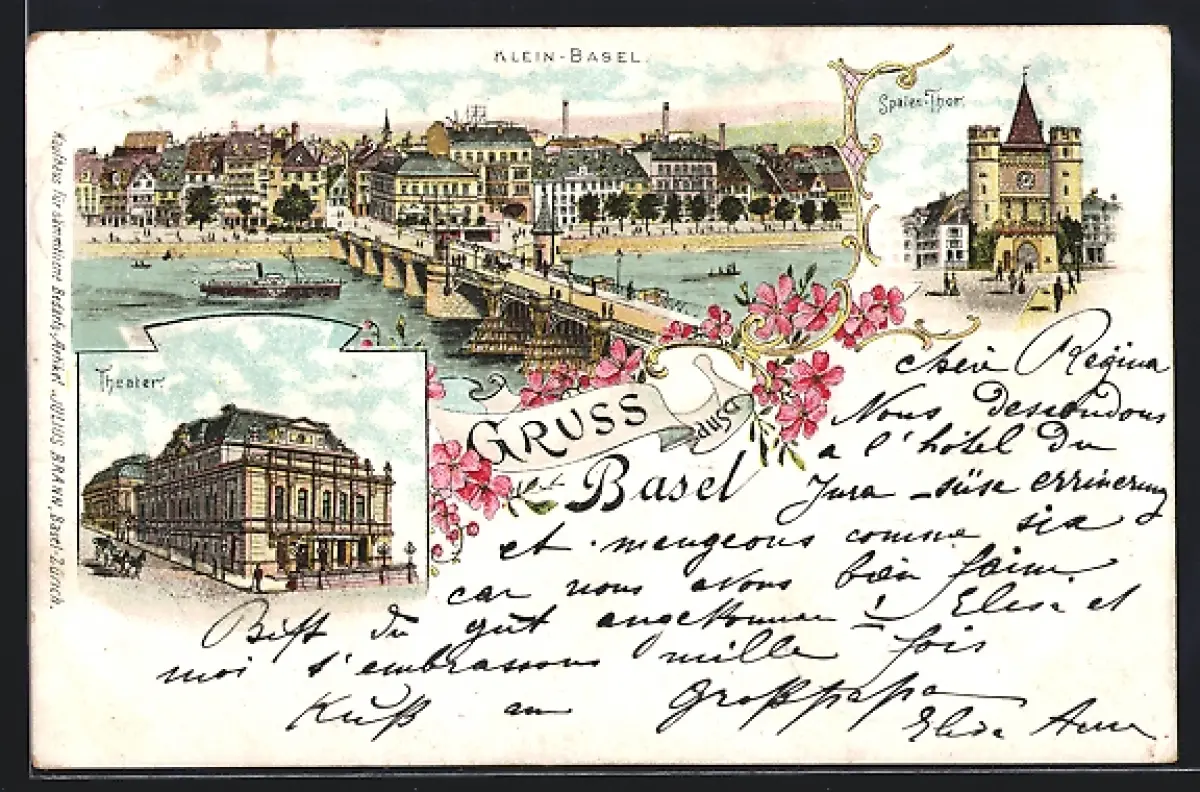 KLEIN-BASEL.
Spalen-Thor.
Theater.
GRUSS aus
Basel
Regina
Nous descendons
a l'hôtel du
Jura - süse errinerung
et mangeons comme
car nous avons bien faim.
Bist du gut angekommen! Elise et
moi t'embrassons mille fois
Kuß an Großpapa
Elise Anna
JULIUS BRANN, Basel-Zürich.